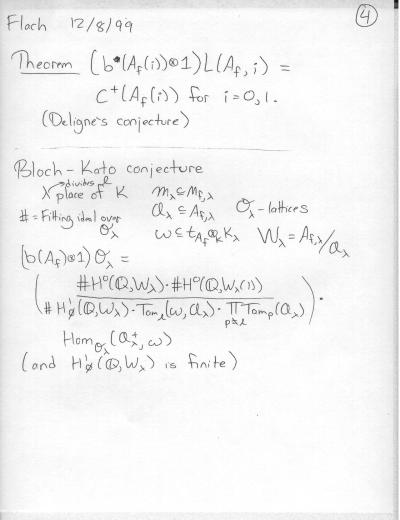 Flach 12/8/99
④
Theorem (b*(A_f(i))⊗1)L(A_f, i) =
C⁺(A_f(i)) for i=0,1.
(Deligne's conjecture)
Bloch-Kato conjecture
divides ℓ
λ place of K m_λ ⊆ M_{f,λ}
# = Fitting ideal over O_λ a_λ ⊆ A_{f,λ} O_λ-lattices
ω ⊆ t_{A_f}⊗_K K_λ W_λ = A_{f,λ}/a_λ
(b(A_f)⊗1)O_λ =
( #H⁰(Q,W_λ)·#H⁰(Q,W_λ(1)) / #H¹_∅(Q,W_λ)·Tam_ℓ(ω,a_λ)·∏_{p≠ℓ}Tam_p(a_λ) ) ·
Hom_{O_λ}(a_λ⁺, ω)
(and H¹_∅(Q,W_λ) is finite)